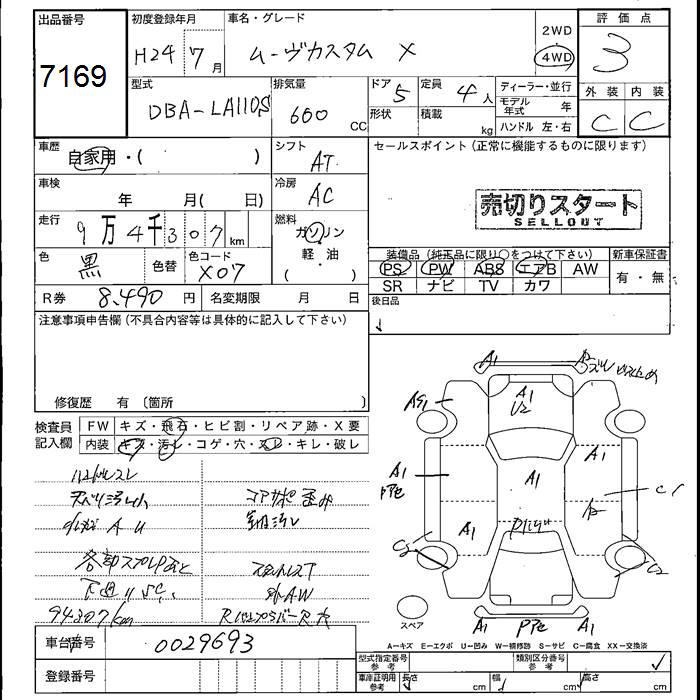 出品番号
7169
初度登録年月
H24 7月
車名・グレード
ムーヴカスタム X
2WD
4WD
評価点
3
外装 内装
C C
型式
DBA-LA110S
排気量
660 CC
ドア
5
形状
定員
4人
積載
kg
ディーラー・並行
モデル年式 年
ハンドル 左・右
車歴
自家用・( )
シフト
AT
セールスポイント(正常に機能するものに限ります)
車検
年 月( 日)
冷房
AC
売切りスタート
SELLOUT
走行
9万4千307km
燃料
ガソリン
軽・油
( )
色
黒
色替
色コード
X07
装備品(純正品に限り○をつけて下さい)
新車保証書
PS PW ABS エアB AW
有・無
SR ナビ TV カワ
R券 8,490円
名変期限 月 日
後日品
注意事項申告欄(不具合内容等は具体的に記入して下さい)
修復歴 有 (箇所
検査員記入欄
FW キズ・飛石・ヒビ割・リペア跡・X要
内装 キズ・汚レ・コゲ・穴・スレ・キレ・破レ
ハンドルスレ
天バリ汚れ小
A U
各部スプレP
下廻り SC
94307km
AW
A1
A1
U2
A1
A1
A1
A1
A1
A1
スペア
A-キズ E-エクボ U-凹み W-補修跡 S-サビ C-腐食 XX-交換済
車台番号 0029693
登録番号
型式指定番号 参考
類別区分番号 参考
車庫証明用 参考
長さ cm
幅 cm
高さ cm